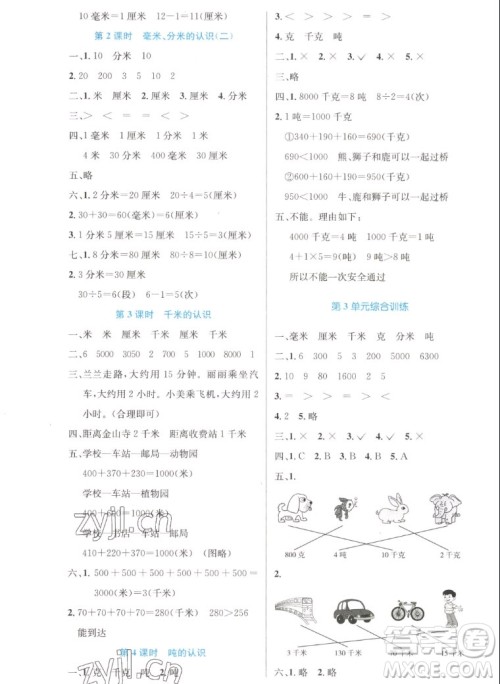 10 毫米=1 厘米 12 毫米>1 厘米
第 2 课时 毫米、分米的认识(二)
一、1. 10 分米 10
2. 20 200 3 5
二、1. 米 厘米 2. 厘米 毫米
三、> < = < = >
四、1 毫米 1 厘米 1 米 1 分米
4 米 30 分米 4 分米
五、略
六、1. 2 分米=20 厘米 20÷4=5(厘米)
2. 30+30=60(毫米) 60毫米=6 厘米
3. 10+5=15(厘米)
七、1. 8 分米=80 厘米 80÷10=8(次)
2. 3 分米=30 厘米
30÷5=6(段) 6-1=5(次)
第 3 课时 千米的认识
一、米 米 厘米 千米 米
二、6 5000 3050 2 7000 1000
三、兰兰走路大约用 15 分钟。丽丽坐汽
车，大约用 2 小时。小美乘飞机，大约用 2
小时。
四、距离金山寺 2 千米 距离收费站 1 千米
五、学校—车站—邮局—动物园
400+370+230=1000(米)
学校—车站—植物园
400+540=940(米)
学校 书店 车站 动物园
410+230=640(千米) (图略)
六、1. 500+500+500+500=2000(米)
2. 70+70+70+70=280(千米) 280>256
能到达
第 4 课时 吨的认识
一、1. 克 千克 吨 克 千克
3. √ × √
4. 克 千克 吨
二、> < < = > =
三、略
四、1. 8000 千克=8 吨 8÷2=4(次)
2. 1 吨=1000 千克
①340+190+160=690(千克)
690<1000 熊、狮子和鹿可以一起过桥
②600+190+160=950(千克)
950<1000 牛、鹿和狮子可以一起过桥
五、不能。理由如下：
4000 千克=4 吨 1000 千克=1 吨
4+1×5=9(吨) 9>6
所以不能一次安全通过
第 3 单元综合训练
一、毫米 吨 克 千克 米
二、1. 10 9 1600 2 5 6 2800
2. > < = > < =
3. ②
4. 2 5. 略
三、1. √ 2. × 3. √ 4. √ 5. ×
四、1. B 2. B 3. C 4. B 5. A
五、1.
800克 4 吨 10 千克 2 千克
2.
3 千米 10 千米 130 千米 1 千米
六、略
zyjl.cn
zyjl.cn
作业精灵